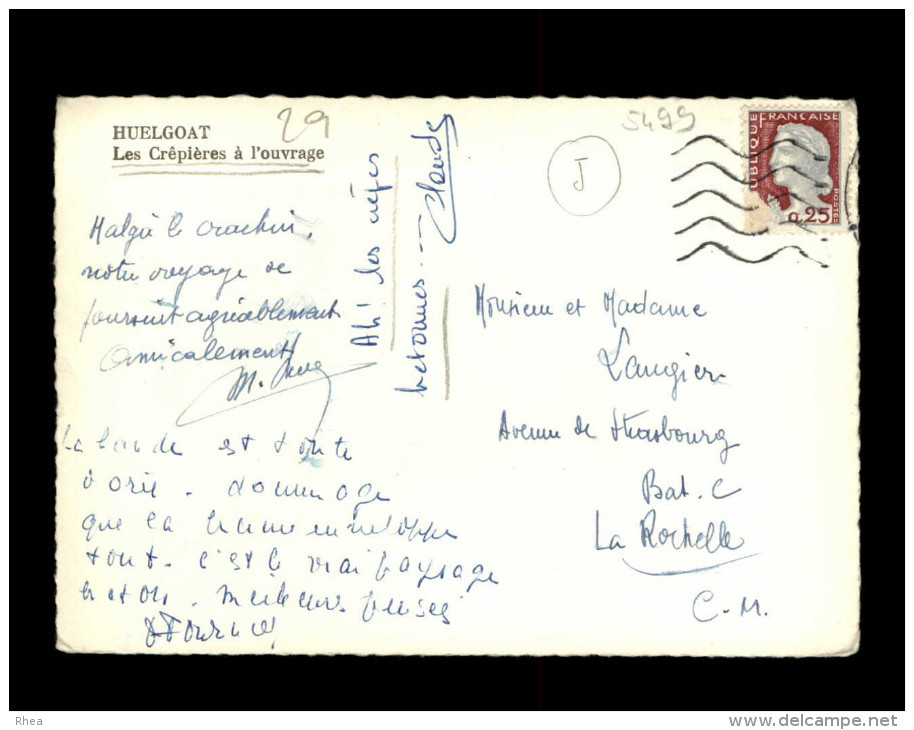 HUELGOAT
Les Crêpières à l'ouvrage
29
5499
J
RÉPUBLIQUE FRANÇAISE
0,25
POSTES
Malgré le crachin,
notre voyage se
poursuit agréablement
Amicalement
M.
Ah! les crêpes
bretonnes...
Claude
La lande est toute
dorée. dommage
que la brume enveloppe
tout. c'est le vrai paysage
breton. meilleures pensées
Monsieur et Madame
Laugier
Avenue de Strasbourg
Bat. C
La Rochelle
C-M.
Rhea
www.delcampe.net